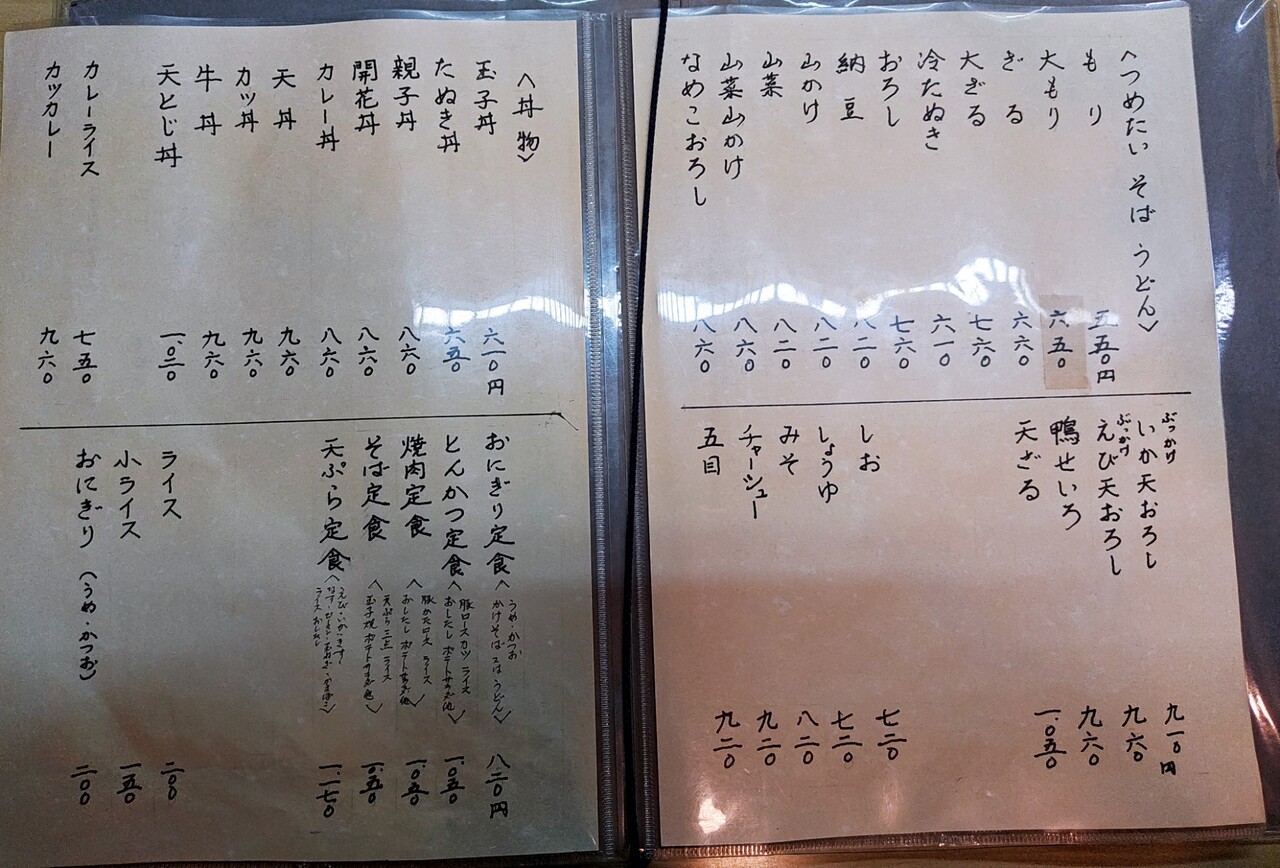 〈つめたい そば うどん〉
もり 五五〇円
大もり 六五〇
ざる 六六〇
大ざる 七六〇
冷たぬき 六一〇
おろし 七六〇
納豆 八二〇
山かけ 八二〇
山菜 八二〇
山菜山かけ 八六〇
なめこおろし 八六〇
ぶっかけ
いか天おろし 九一〇円
ぶっかけ
えび天おろし 九六〇
鴨せいろ 九六〇
天ざる 一、〇五〇
しお 七二〇
しょうゆ 七二〇
みそ 八二〇
チャーシュー 九二〇
五目 九二〇
〈丼物〉
玉子丼 六一〇円
たぬき丼 六五〇
親子丼 八六〇
開花丼 八六〇
カレー丼 八六〇
天丼 九六〇
カツ丼 九六〇
牛丼 九六〇
天とじ丼 一、〇二〇
カレーライス 七五〇
カツカレー 九六〇
おにぎり定食 〈うめ・かつお
かけそば又はうどん〉 八二〇円
とんかつ定食 〈豚ロースカツ ライス
おしたし ポテトサラダ他〉 一、〇五〇
焼肉定食 〈豚かたロース ライス
おしたし ポテトサラダ他〉 一、〇五〇
そば定食 〈天ぷら三点 ライス
玉子焼 ポテトサラダ他〉 一、〇五〇
天ぷら定食 〈えび・いか・
ライス おしたし 一、一七〇
ライス 二〇〇
小ライス 一五〇
おにぎり（うめ・かつお） 二〇〇